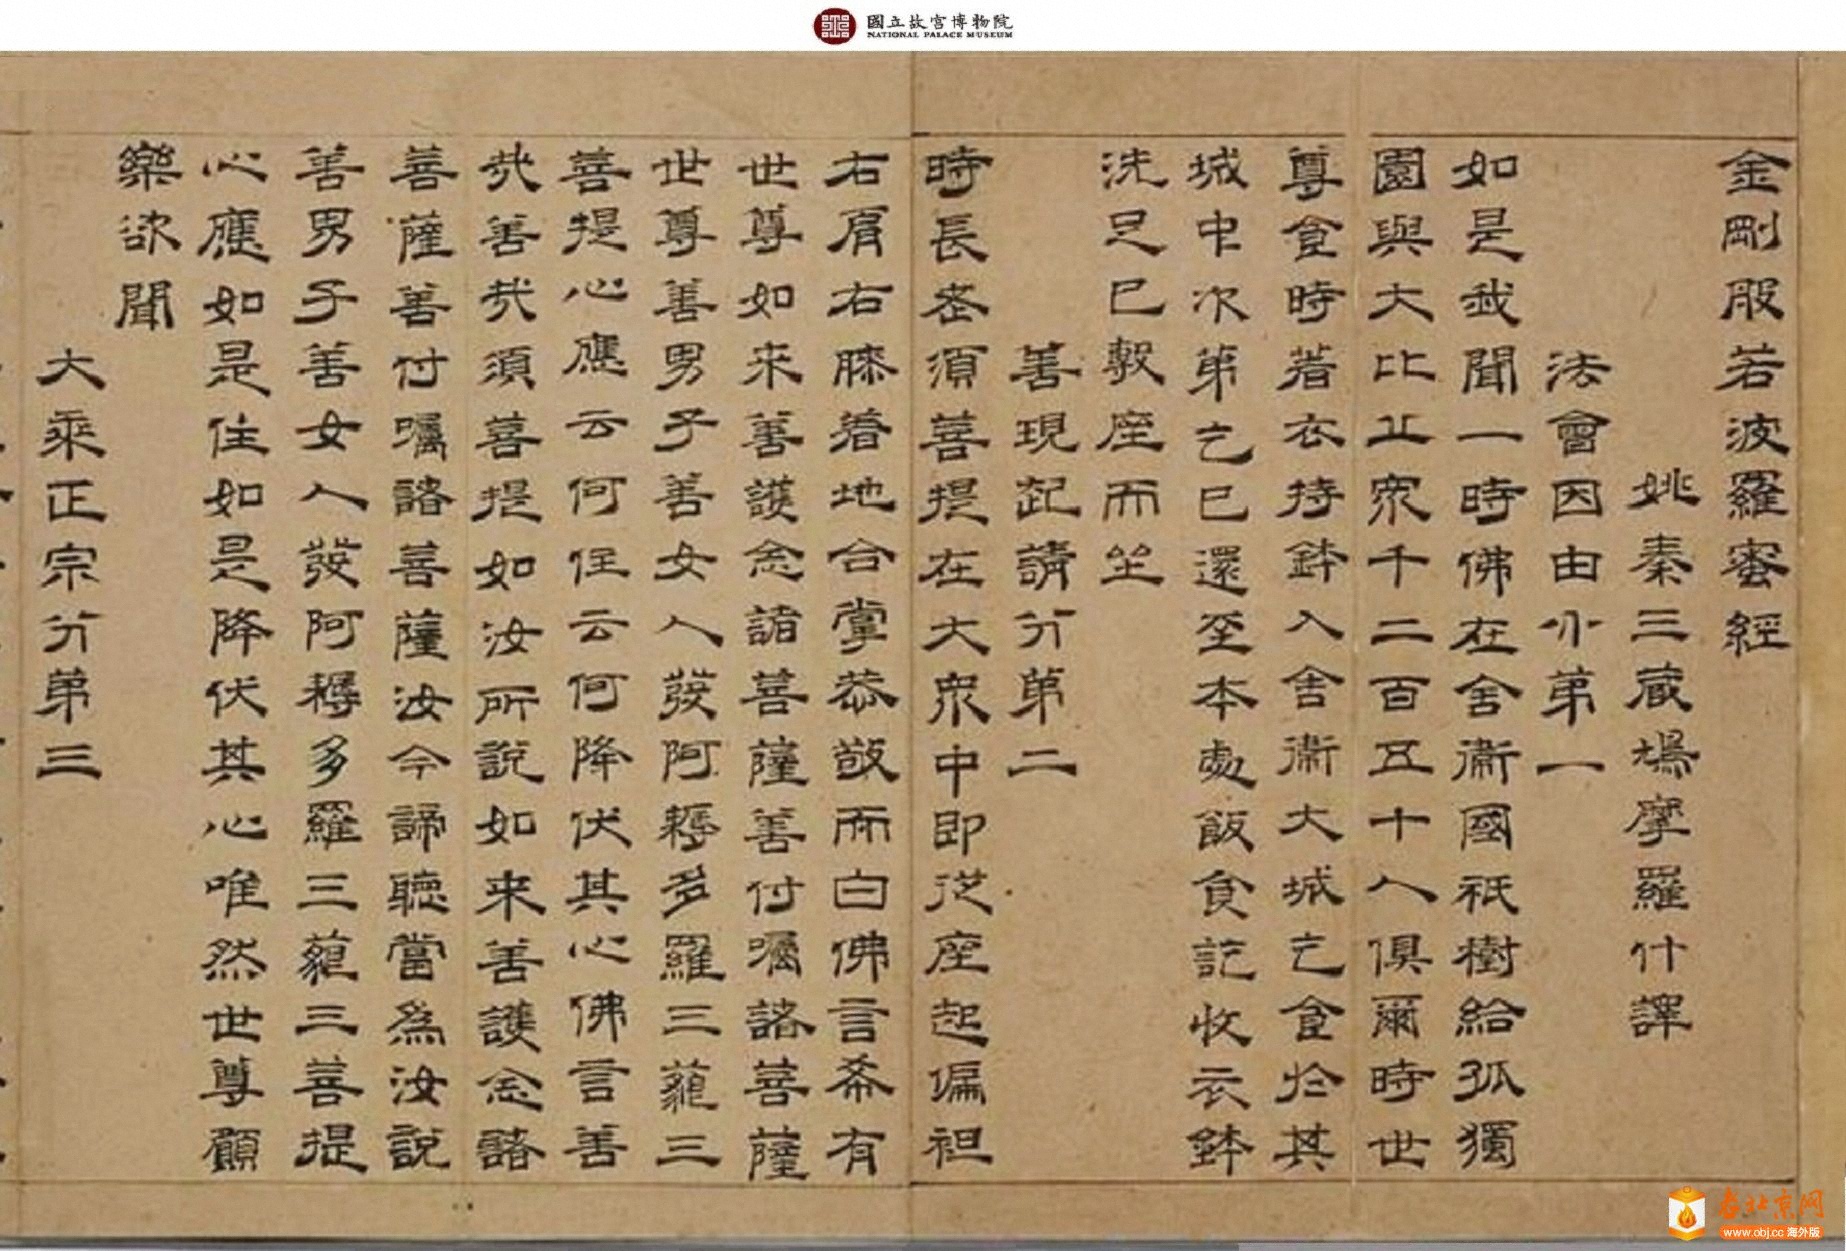 國立故宮博物院
NATIONAL PALACE MUSEUM
金剛般若波羅蜜經
姚秦三藏鳩摩羅什譯
法會因由分第一
如是我聞一時佛在舍衛國祇樹給孤獨
園與大比丘眾千二百五十人俱爾時世
尊食時著衣持鉢入舍衛大城乞食於其
城中次第乞已還至本處飯食訖收衣鉢
洗足已敷座而坐
善現起請分第二
時長老須菩提在大眾中即從座起偏袒
右肩右膝着地合掌恭敬而白佛言希有
世尊如来善護念諸菩薩善付囑諸菩薩
世尊善男子善女人發阿耨多羅三藐三
菩提心應云何住云何降伏其心佛言善
哉善哉須菩提如汝所說如来善護念諸
菩薩善付囑諸菩薩汝今諦聽當為汝說
善男子善女人發阿耨多羅三藐三菩提
心應如是住如是降伏其心唯然世尊願
樂欲聞
大乘正宗分第三
老北京网
www.obj.cc 海外版